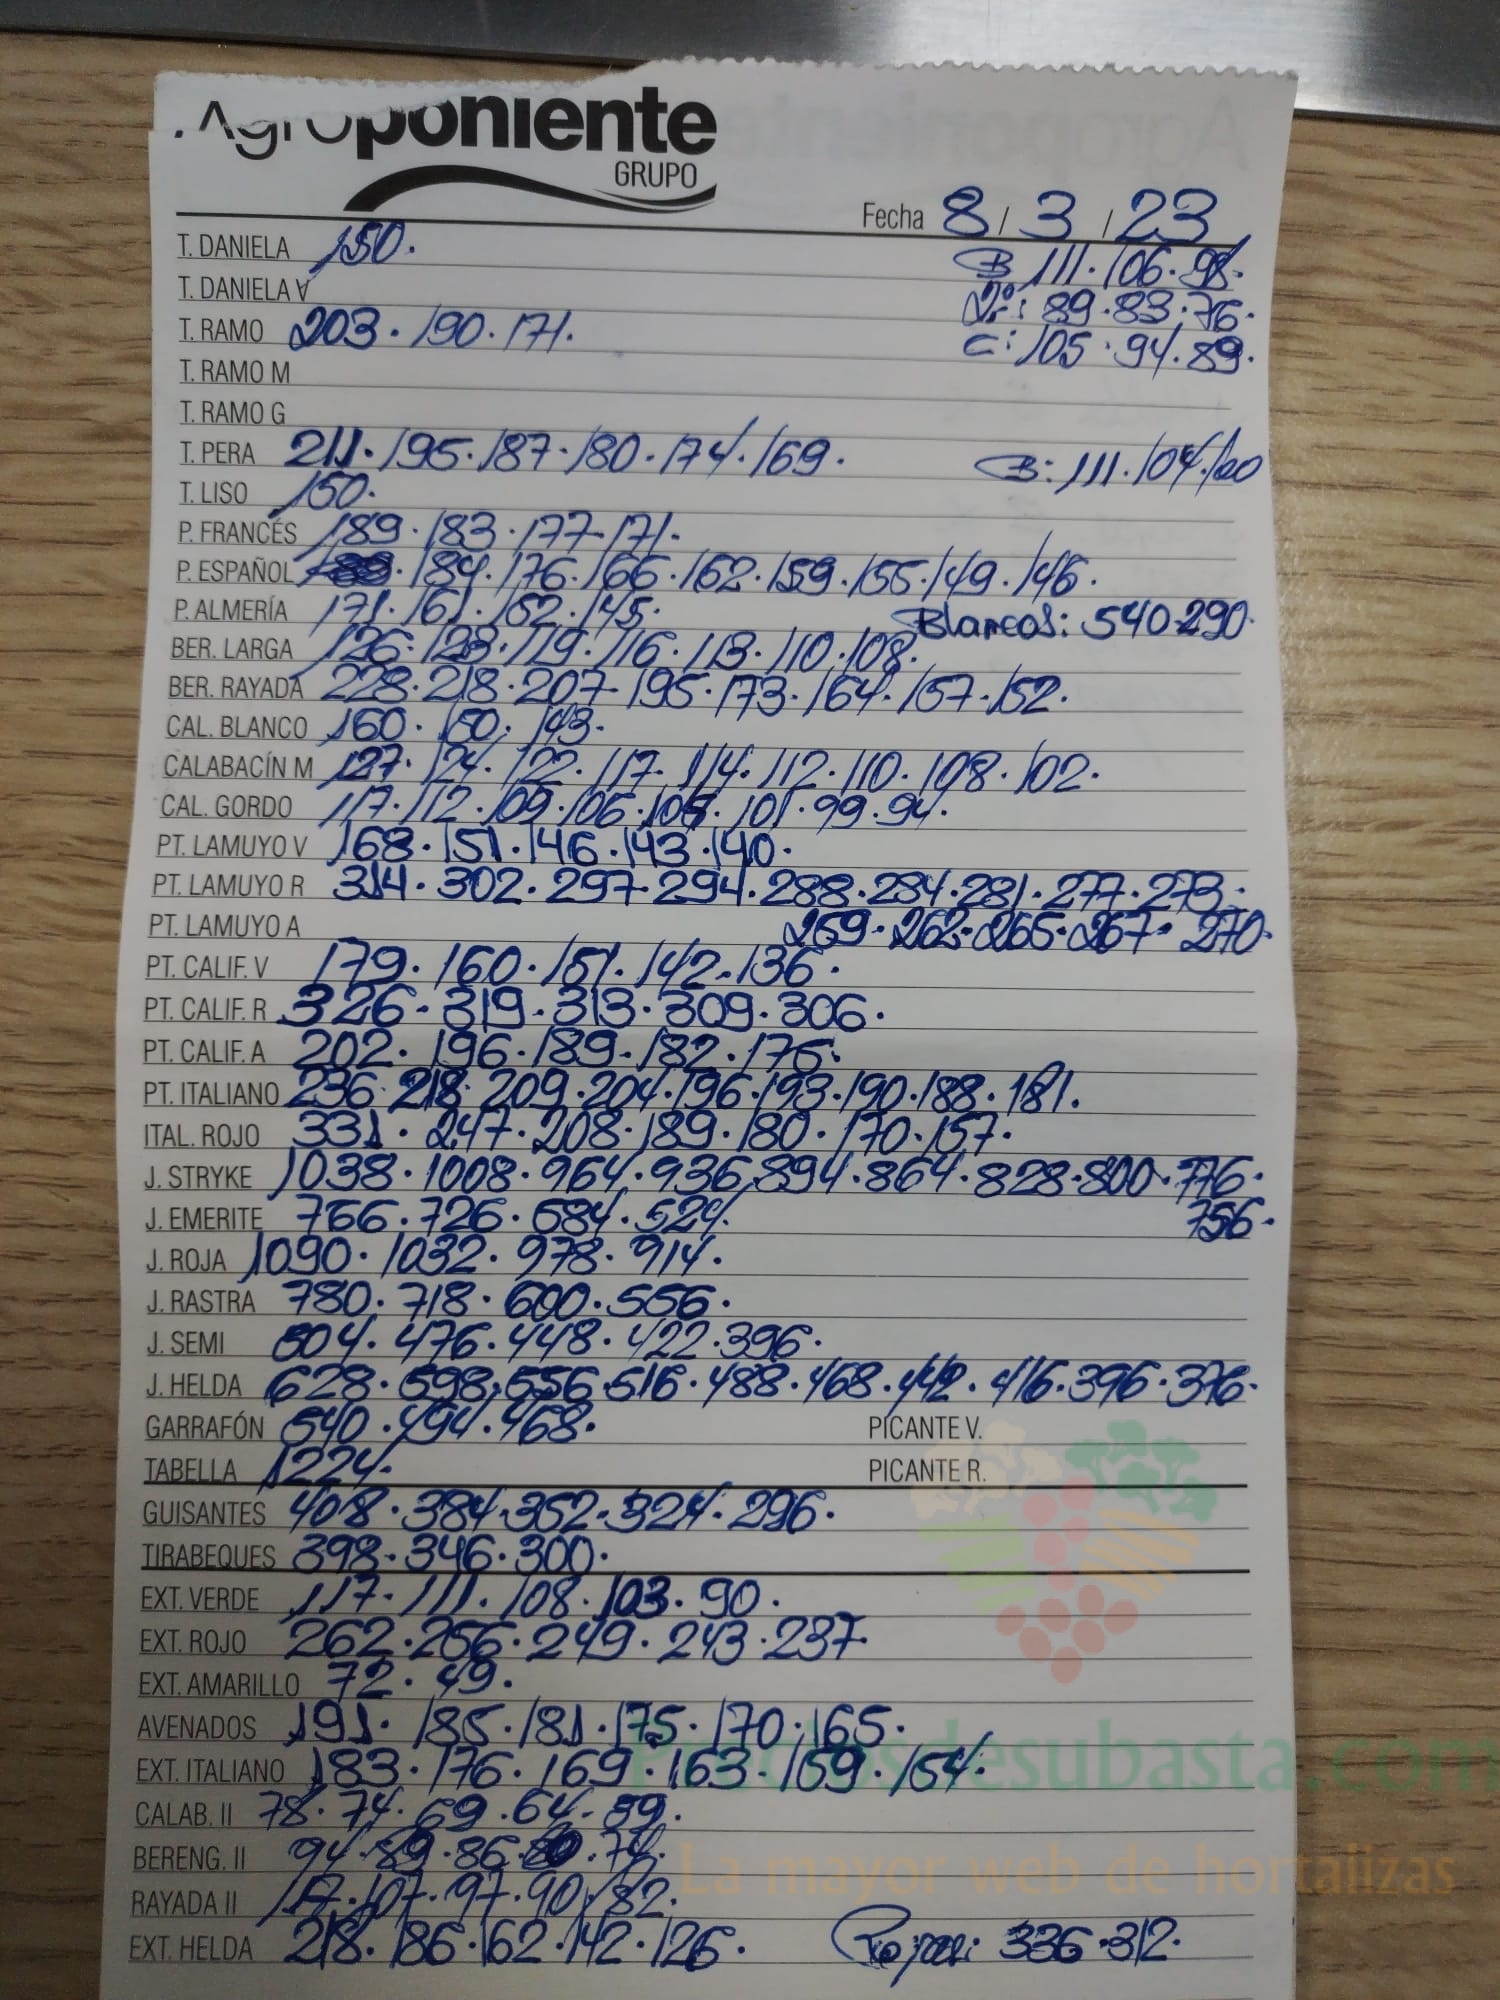 Agroponiente
GRUPO
Fecha 8 / 3 / 23
T. DANIELA 150. B 111. 106. 98.
T. DANIELA V 2ª: 89. 83. 76.
T. RAMO 203. 190. 171. C: 105. 94. 89.
T. RAMO M
T. RAMO G
T. PERA 211. 195. 187. 180. 174. 169. B: 111. 104. 100
T. LISO 150.
P. FRANCÉS 189. 183. 177. 171.
P. ESPAÑOL 184. 176. 166. 162. 159. 155. 149. 146.
P. ALMERÍA 171. 161. 152. 145. Blancos: 540. 290.
BER. LARGA 126. 123. 119. 116. 113. 110. 108.
BER. RAYADA 228. 218. 207. 195. 173. 164. 157. 152.
CAL. BLANCO 160. 150. 143.
CALABACÍN M 127. 124. 122. 117. 114. 112. 110. 108. 102.
CAL. GORDO 117. 112. 109. 106. 101. 99. 94.
PT. LAMUYO V 168. 151. 146. 143. 140.
PT. LAMUYO R 314. 302. 297. 294. 288. 284. 281. 277. 273.
PT. LAMUYO A 259. 262. 265. 267. 270.
PT. CALIF. V 179. 160. 151. 142. 136.
PT. CALIF. R 326. 319. 313. 309. 306.
PT. CALIF. A 202. 196. 189. 182. 175.
PT. ITALIANO 236 218. 209. 204. 196. 193. 190. 188. 181.
ITAL. ROJO 331. 247. 208. 189. 180. 170. 157.
J. STRYKE 1038. 1008. 964. 936. 894. 864. 828. 800. 776.
J. EMERITE 766. 726. 684. 524. 756.
J. ROJA 1090. 1032. 978. 914.
J. RASTRA 780. 718. 600. 556.
J. SEMI 504. 476. 448. 422. 396.
J. HELDA 628. 598. 556. 516. 488. 468. 442. 416. 396. 376.
GARRAFÓN 540. 494. 468. PICANTE V.
TABELLA 1224. PICANTE R.
GUISANTES 408. 384. 352. 324. 296.
TIRABEQUES 398. 346. 300.
EXT. VERDE 117. 111. 108. 103. 90.
EXT. ROJO 262. 256. 249. 243. 237.
EXT. AMARILLO 72. 49.
AVENADOS 191. 185. 181. 175. 170. 165.
EXT. ITALIANO 183. 176. 169. 163. 159. 154.
Preciosdesubasta.com
CALAB. II 78. 74. 69. 64. 59.
BERENG. II 94. 89. 86. 80. 74.
La mayor web de hortalizas
RAYADA II 117. 107. 97. 90. 82.
EXT. HELDA 218. 186. 162. 142. 126. Rojas: 336. 312.